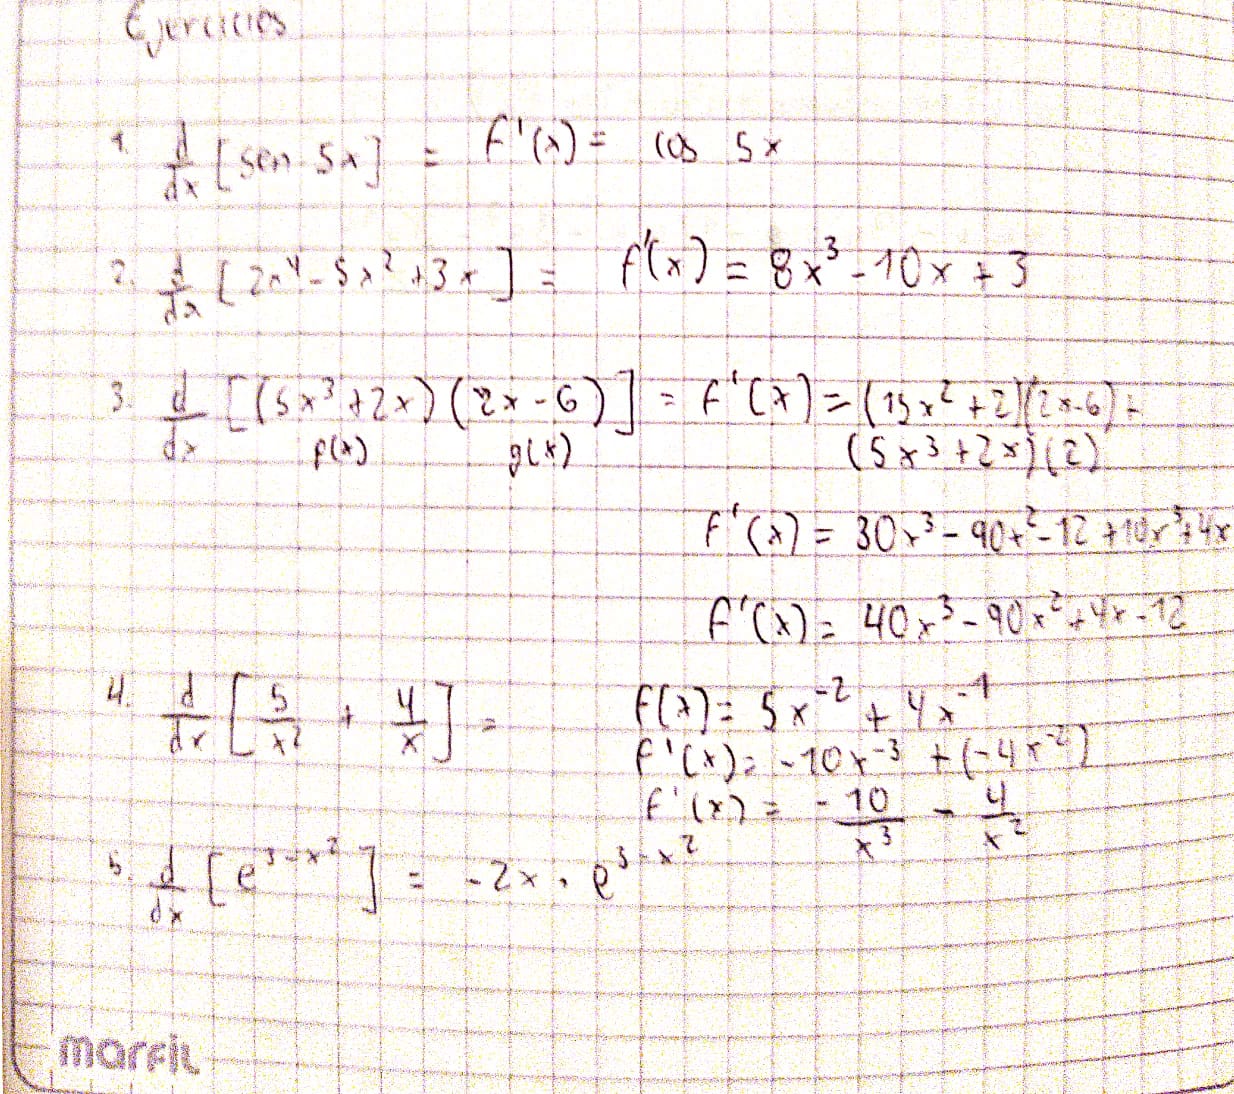 Ejercicios
1. d/dx [sen 5x] = f'(x) = cos 5x
2. d/dx [2x⁴ - 5x² + 3x] = f'(x) = 8x³ - 10x + 3
3. d/dx [(5x³ + 2x)(2x - 6)] = f'(x) = (15x² + 2)(2x-6) -
f(x) g(x) (5x³ + 2x)(2)
f'(x) = 30x³ - 90x² - 12 + 10x³ + 4x
f'(x) = 40x³ - 90x² + 4x - 12
4. d/dx [5/x² + 4/x] = f(x) = 5x⁻² + 4x⁻¹
f'(x) = -10x⁻³ + (-4x⁻²)
f'(x) = - 10/x³ - 4/x²
5. d/dx [e³⁻ˣ²] = -2x · e³⁻ˣ²
marfil